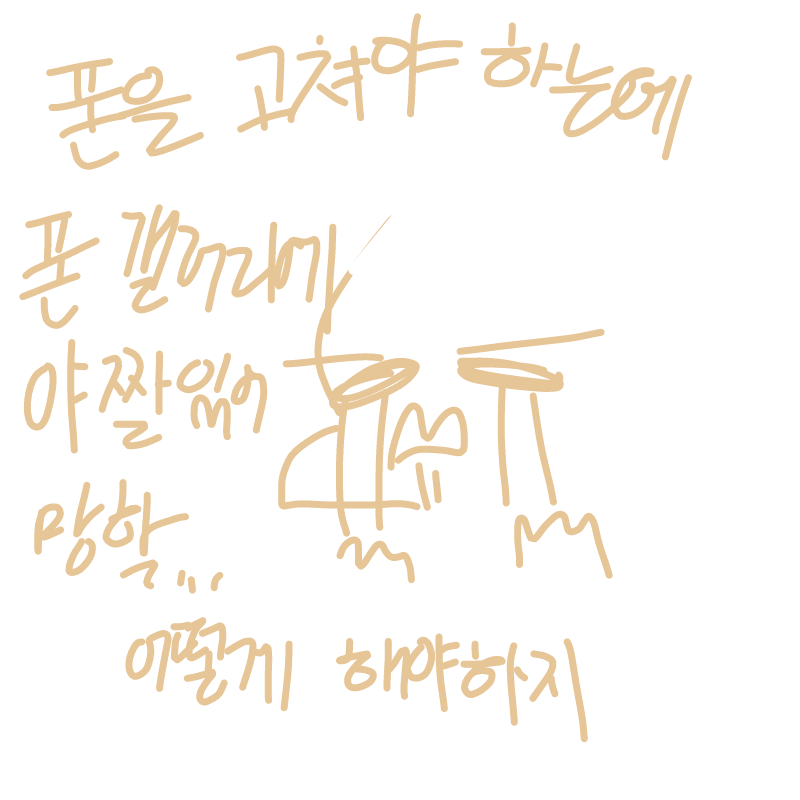 폰을 고쳐야 하는데
폰 갤러리에
야짤있어
망할...
어떻게 해야하지